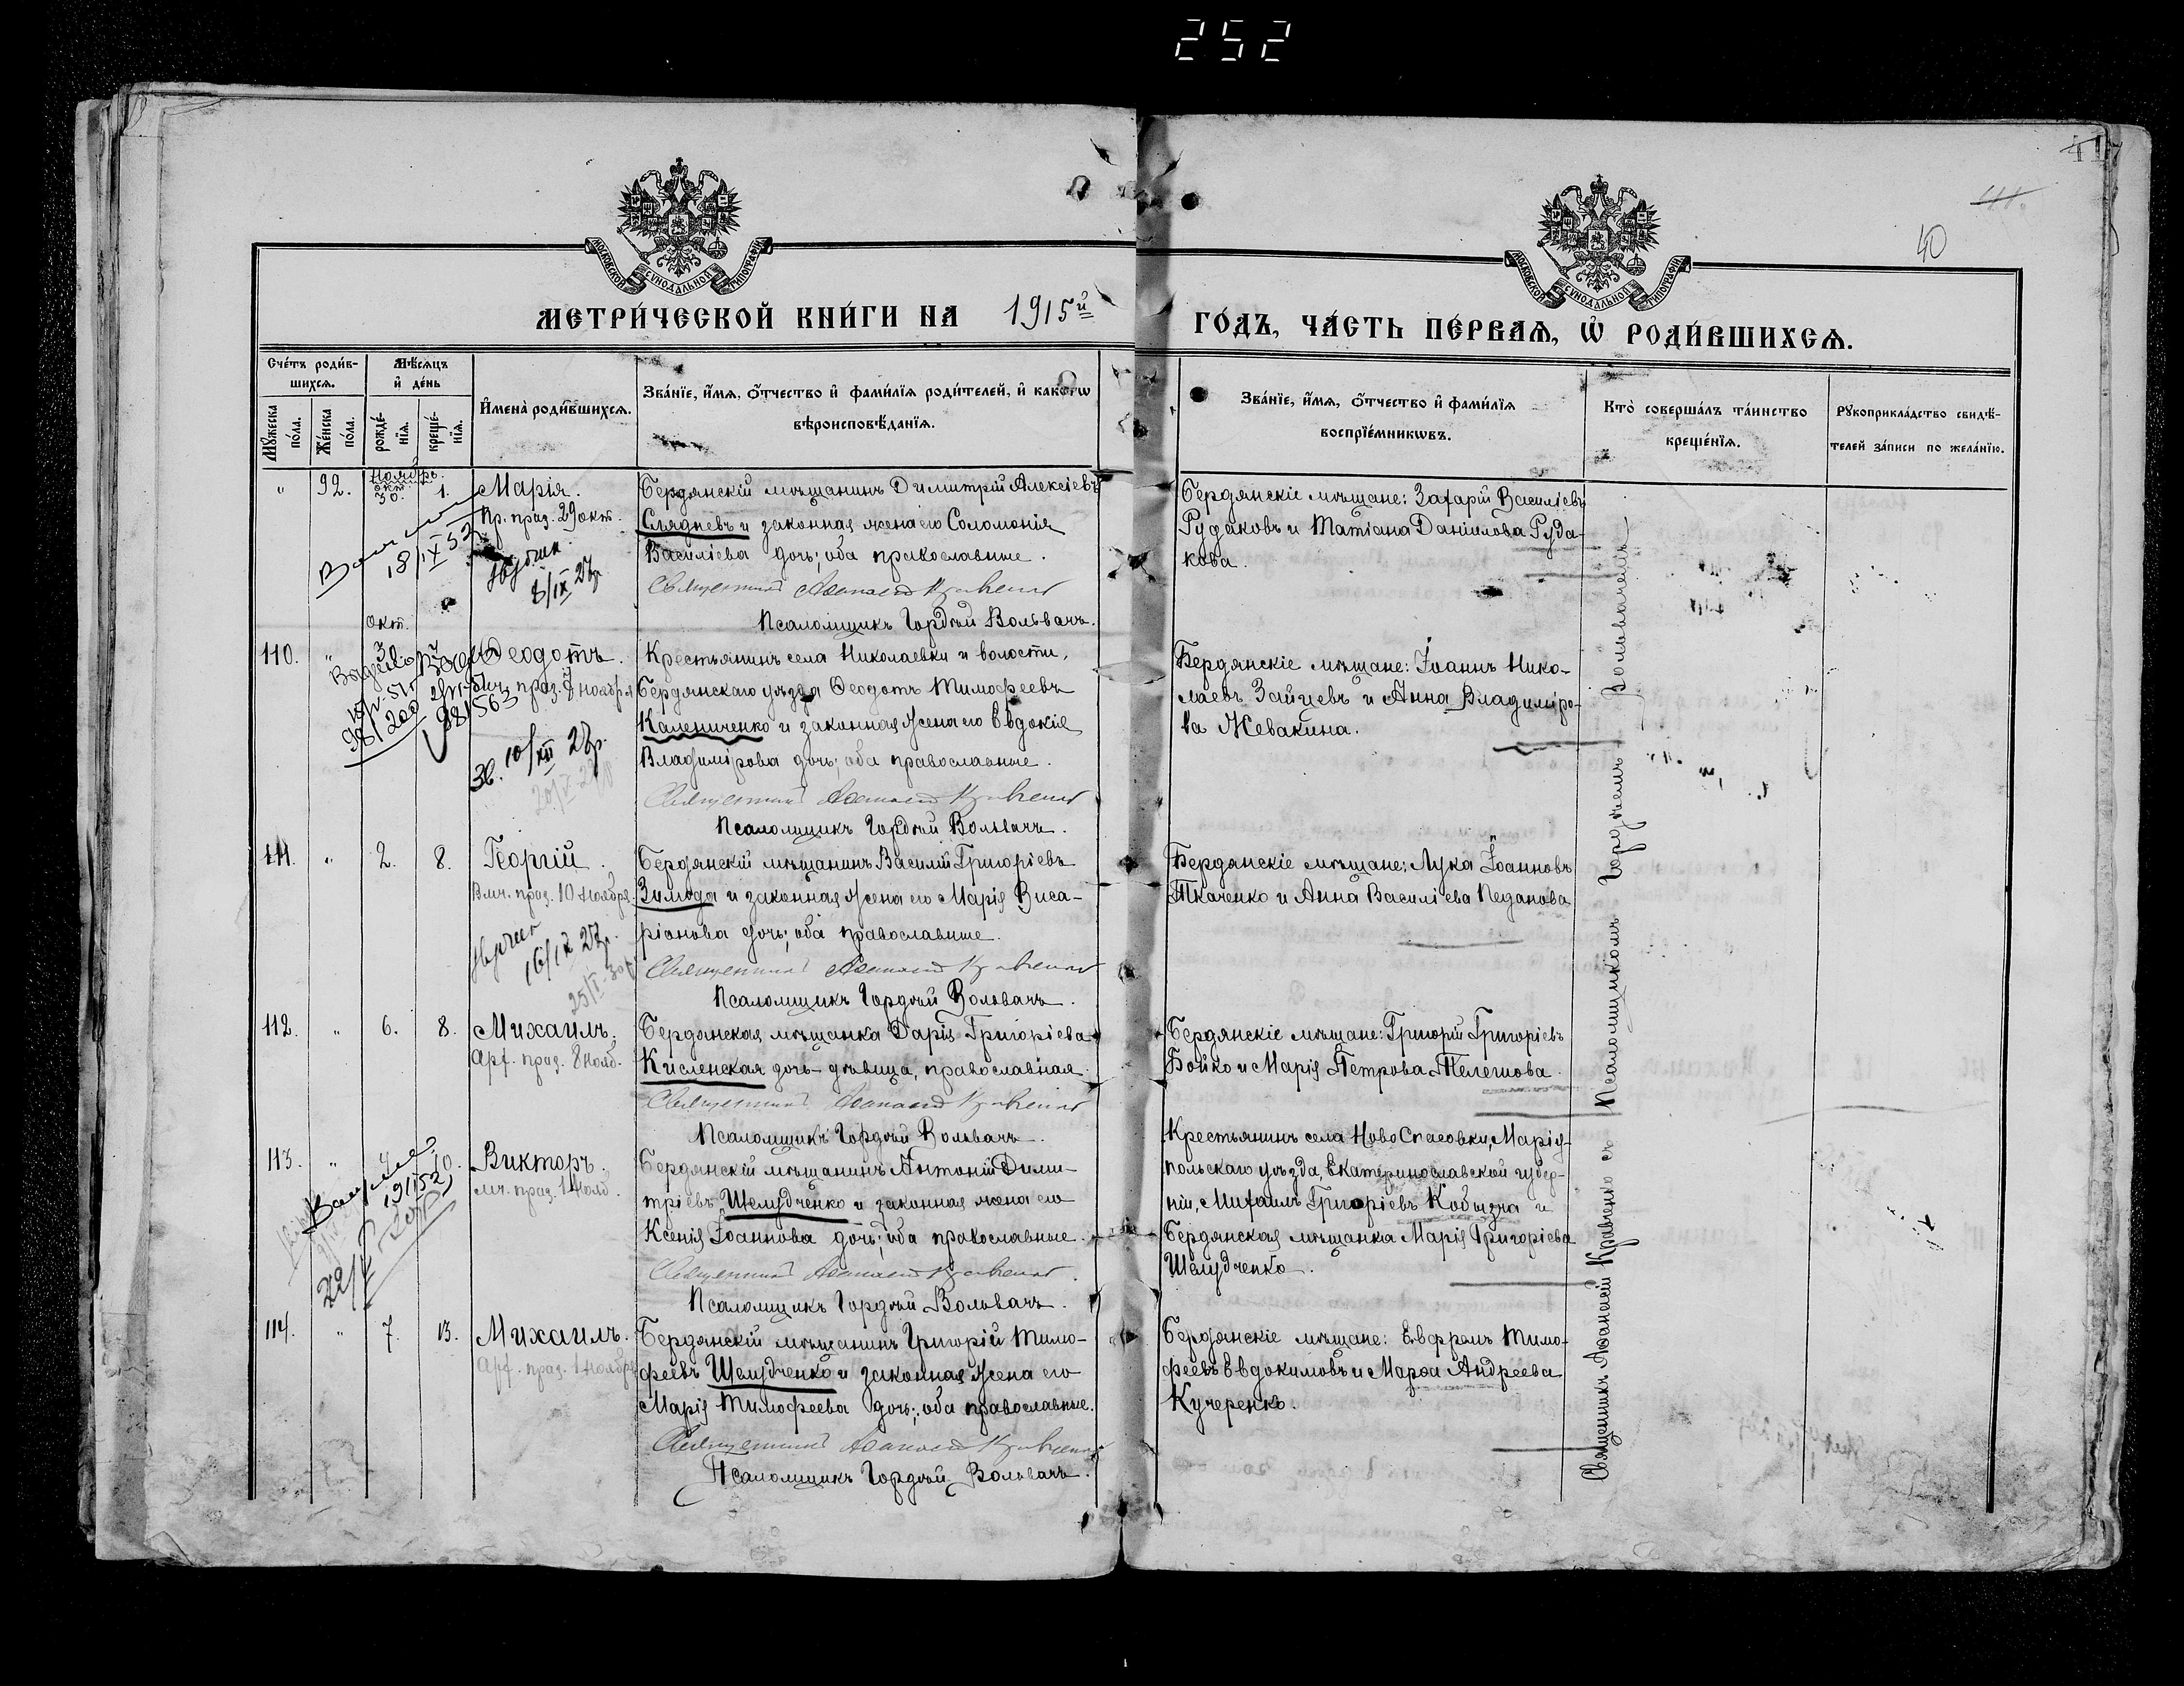 252
40
МОСКОВСКОЙ СѴНОДАЛЬНОЙ ТИПОГРАФІИ
МОСКОВСКОЙ СѴНОДАЛЬНОЙ ТИПОГРАФІИ
МЕТРИ́ЧЕСКОЙ КНИ́ГИ НА 1915й
ГО́ДЪ, ЧА́СТЬ ПЕ́РВАЯ, Ѡ҆ РОДИ́ВШИХСЯ.
Сче́тъ роди́в-
шихся.
Мѣ́сяцъ
и҆ де́нь
Мꙋ́жеска
по́ла.
Же́нска
по́ла.
рожде́-
нїя.
креще́-
нїя.
И҆мена̀ роди́вшихся.
Зва́нїе, и҆́мя, ѻ҆́тчество и҆ фами́лїя роди́телей, и҆ како́гѡ
вѣроисповѣ́данїя.
Зва́нїе, и҆́мя, ѻ҆́тчество и҆ фами́лїя
воспрїе́мникѡвъ.
Кто̀ соверша́лъ та́инство
креще́нїя.
Рꙋкоприкла́дство свидѣ́-
телей за́писи по жела́нїю.
Ноябрь.
" 92. окт. 30. 1. Марія.
Пр. праз. 29 окт.
18/IX 53
8/IX 27г.
Бердянскій мѣщанинъ Димитрій Алексіевъ
Слядневъ и законная жена его Соломонія
Василіева дочь; оба православные.
Священникъ Аѳанасій Кравченко
Псаломщикъ Гордѣй Вольвачъ.
Бердянскіе мѣщане: Захарій Василіевъ
Рудаковъ и Татіана Даніилова Руда-
кова.
окт.
110. " Ѳеодотъ.
праз. 7 ноября
98/200
Зв. 10/XII 27г.
Крестьянинъ села Николаевки и волости,
Бердянскаго уѣзда Ѳеодотъ Тимоѳеевъ
Калениченко и законная жена его Евдокія
Владимірова дочь; оба православные.
Священникъ Аѳанасій Кравченко
Псаломщикъ Гордѣй Вольвачъ.
Бердянскіе мѣщане: Іоаннъ Нико-
лаевъ Зайцевъ и Анна Владиміро-
ва Жевакина.
111. " 2. 8. Георгій.
Вмч. праз. 10 ноября.
16/IX 27г.
Бердянскій мѣщанинъ Василій Григоріевъ
Зимода и законная жена его Марія Виса-
ріонова дочь; оба православные.
Священникъ Аѳанасій Кравченко
Псаломщикъ Гордѣй Вольвачъ.
Бердянскіе мѣщане: Лука Іоанновъ
Ткаченко и Анна Василіева Педанова
112. " 6. 8. Михаилъ.
Арх. праз. 8 нояб.
Бердянская мѣщанка Дарія Григоріева
Кисленская дочь - дѣвица, православная.
Священникъ Аѳанасій Кравченко
Псаломщикъ Гордѣй Вольвачъ.
Бердянскіе мѣщане: Григорій Григоріевъ
Бойко и Марія Петрова Телешова.
113. " Викторъ.
мч. праз. 11 нояб.
Бердянскій мѣщанинъ Антоній Дими-
тріевъ Шелудченко и законная жена его
Ксенія Іоаннова дочь; оба православные.
Священникъ Аѳанасій Кравченко
Псаломщикъ Гордѣй Вольвачъ.
Крестьянинъ села НовоСпасовки, Маріу-
польскаго уѣзда, Екатеринославской губер-
ніи, Михаилъ Григоріевъ Кобызча и
Бердянская мѣщанка Марія Григоріева
Шелудченко.
114. " 7. 13. Михаилъ.
Арх. праз. ноября
Бердянскій мѣщанинъ Григорій Тимо-
феевъ Шелудченко и законная жена его
Марія Тимофеева дочь; оба православные.
Священникъ Аѳанасій Кравченко
Псаломщикъ Гордѣй Вольвачъ.
Бердянскіе мѣщане: Евфремъ Тимо-
феевъ Евдокимовъ и Марѳа Андреева
Кучеренко.
Священникъ Аѳанасій Кравченко съ Псаломщикомъ Гордѣемъ Вольвачемъ